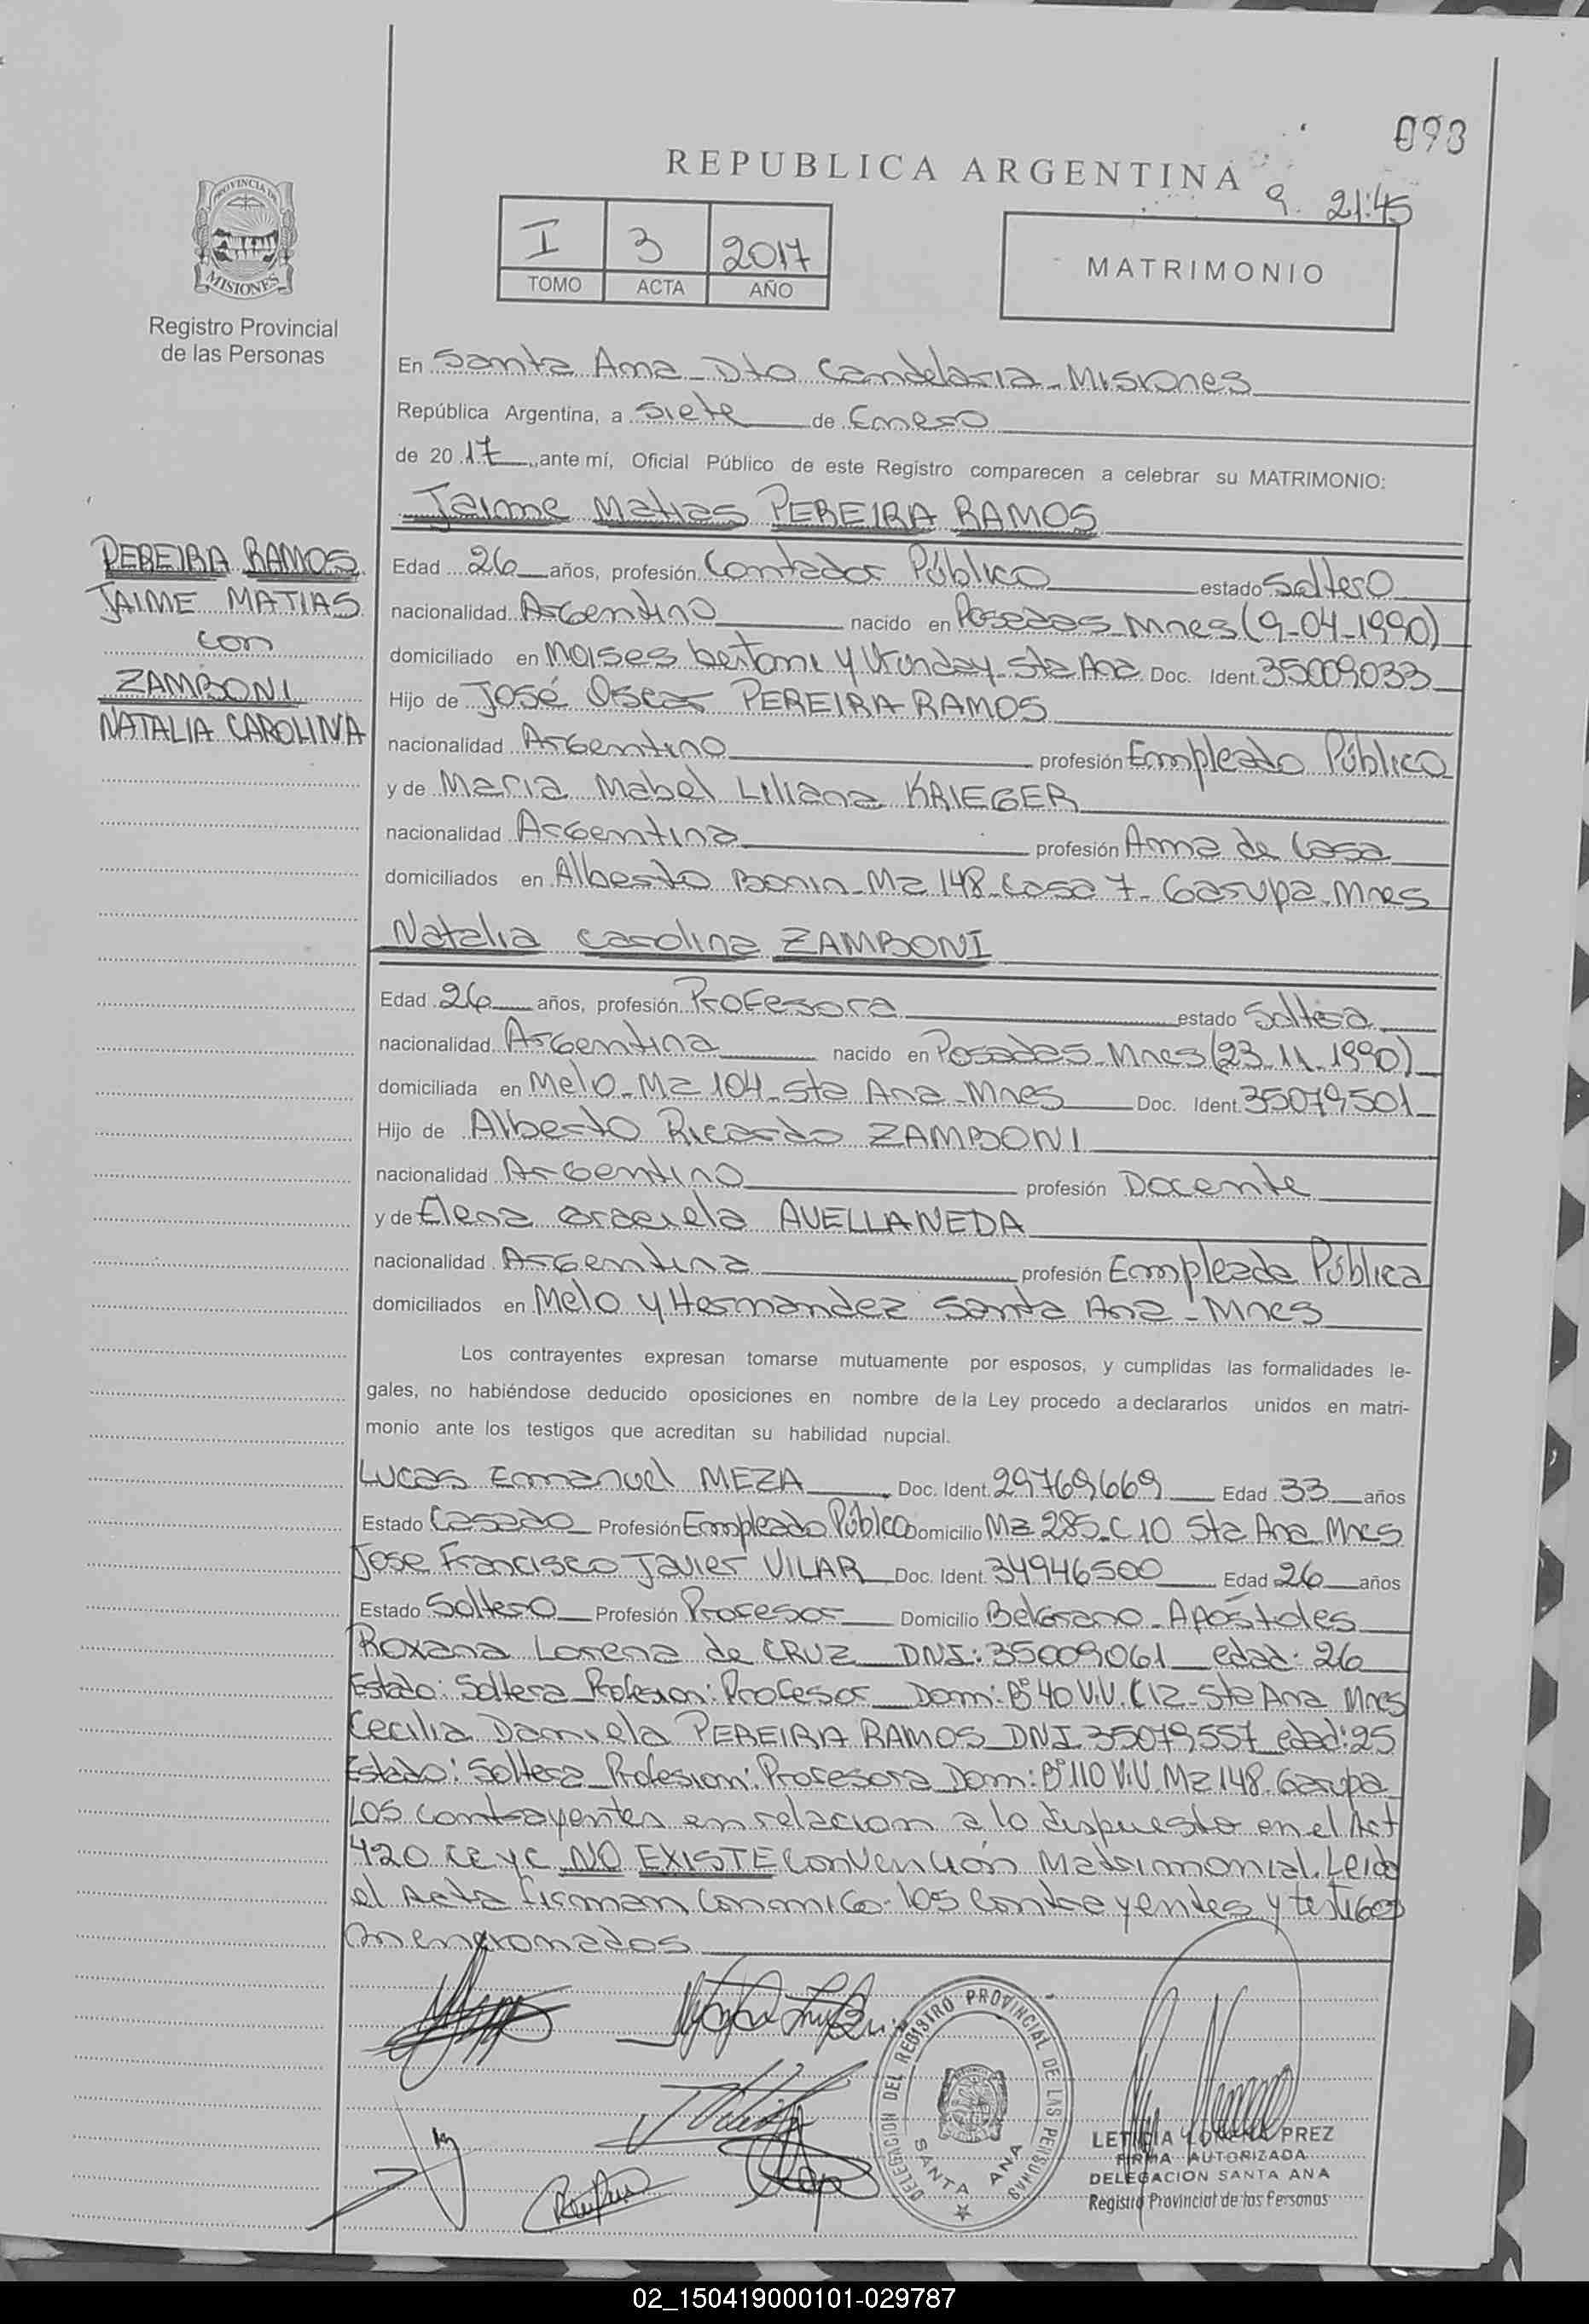 093
REPUBLICA ARGENTINA
9 21:45
PROVINCIA DE
MISIONES
Registro Provincial
de las Personas
I 3 2017
TOMO ACTA AÑO
MATRIMONIO
En Santa Ana - Dto Candelaria - Misiones
República Argentina, a siete de Enero
de 20 17, ante mí, Oficial Público de este Registro comparecen a celebrar su MATRIMONIO:
Jaime Matias PEREIRA RAMOS
PEREIRA RAMOS
JAIME MATIAS
con
ZAMBONI
NATALIA CAROLINA
Edad 26 años, profesión Contador Público estado Soltero
nacionalidad Argentino nacido en Posadas Mnes (9-04-1990)
domiciliado en Moises bertoni y Urunday - Sta Ana Doc. Ident. 35009033
Hijo de José Oscar PEREIRA RAMOS
nacionalidad Argentino profesión Empleado Público
y de Maria Mabel Liliana KRIEGER
nacionalidad Argentina profesión Ama de Casa
domiciliados en Alberto Bonin - Mz 148 - casa 7 - Garupa - Mnes
Natalia Carolina ZAMBONI
Edad 26 años, profesión Profesora estado Soltera
nacionalidad Argentina nacido en Posadas - Mnes (23-11-1990)
domiciliada en Melo - Mz 104 - Sta Ana - Mnes Doc. Ident. 35079501
Hijo de Alberto Ricardo ZAMBONI
nacionalidad Argentino profesión Docente
y de Elena Graciela AVELLANEDA
nacionalidad Argentina profesión Empleada Pública
domiciliados en Melo y Hernandez Santa Ana - Mnes
Los contrayentes expresan tomarse mutuamente por esposos, y cumplidas las formalidades le-
gales, no habiéndose deducido oposiciones en nombre de la Ley procedo a declararlos unidos en matri-
monio ante los testigos que acreditan su habilidad nupcial.
Lucas Emanuel MEZA Doc. Ident. 29769669 Edad 33 años
Estado Casado Profesión Empleado Público Domicilio Mz 285 - C 10 Sta Ana Mnes
Jose Francisco Javier VILAR Doc. Ident. 34946500 Edad 26 años
Estado Soltero Profesión Profesor Domicilio Belgrano - Apóstoles
Roxana Lorena de CRUZ DNI: 35009061 edad: 26
Estado: Soltera Profesion: Profesor Dom: B° 40 Viv. C12 - Sta Ana Mnes
Cecilia Daniela PEREIRA RAMOS DNI 35079557 edad: 25
Estado: Soltera Profesion: Profesora Dom: B° 110 Viv. Mz 148 - Garupa
Los contrayentes en relacion a lo dispuesto en el Art
420 CC y C NO EXISTE Convención Matrimonial. Leido
el Acta firman conmigo los contrayentes y testigos
mencionados
DELEGACION DEL REGISTRO PROVINCIAL DE LAS PERSONAS
SANTA ANA
LETICIA LORENA PREZ
FIRMA AUTORIZADA
DELEGACION SANTA ANA
Registro Provincial de las Personas
02_150419000101-029787